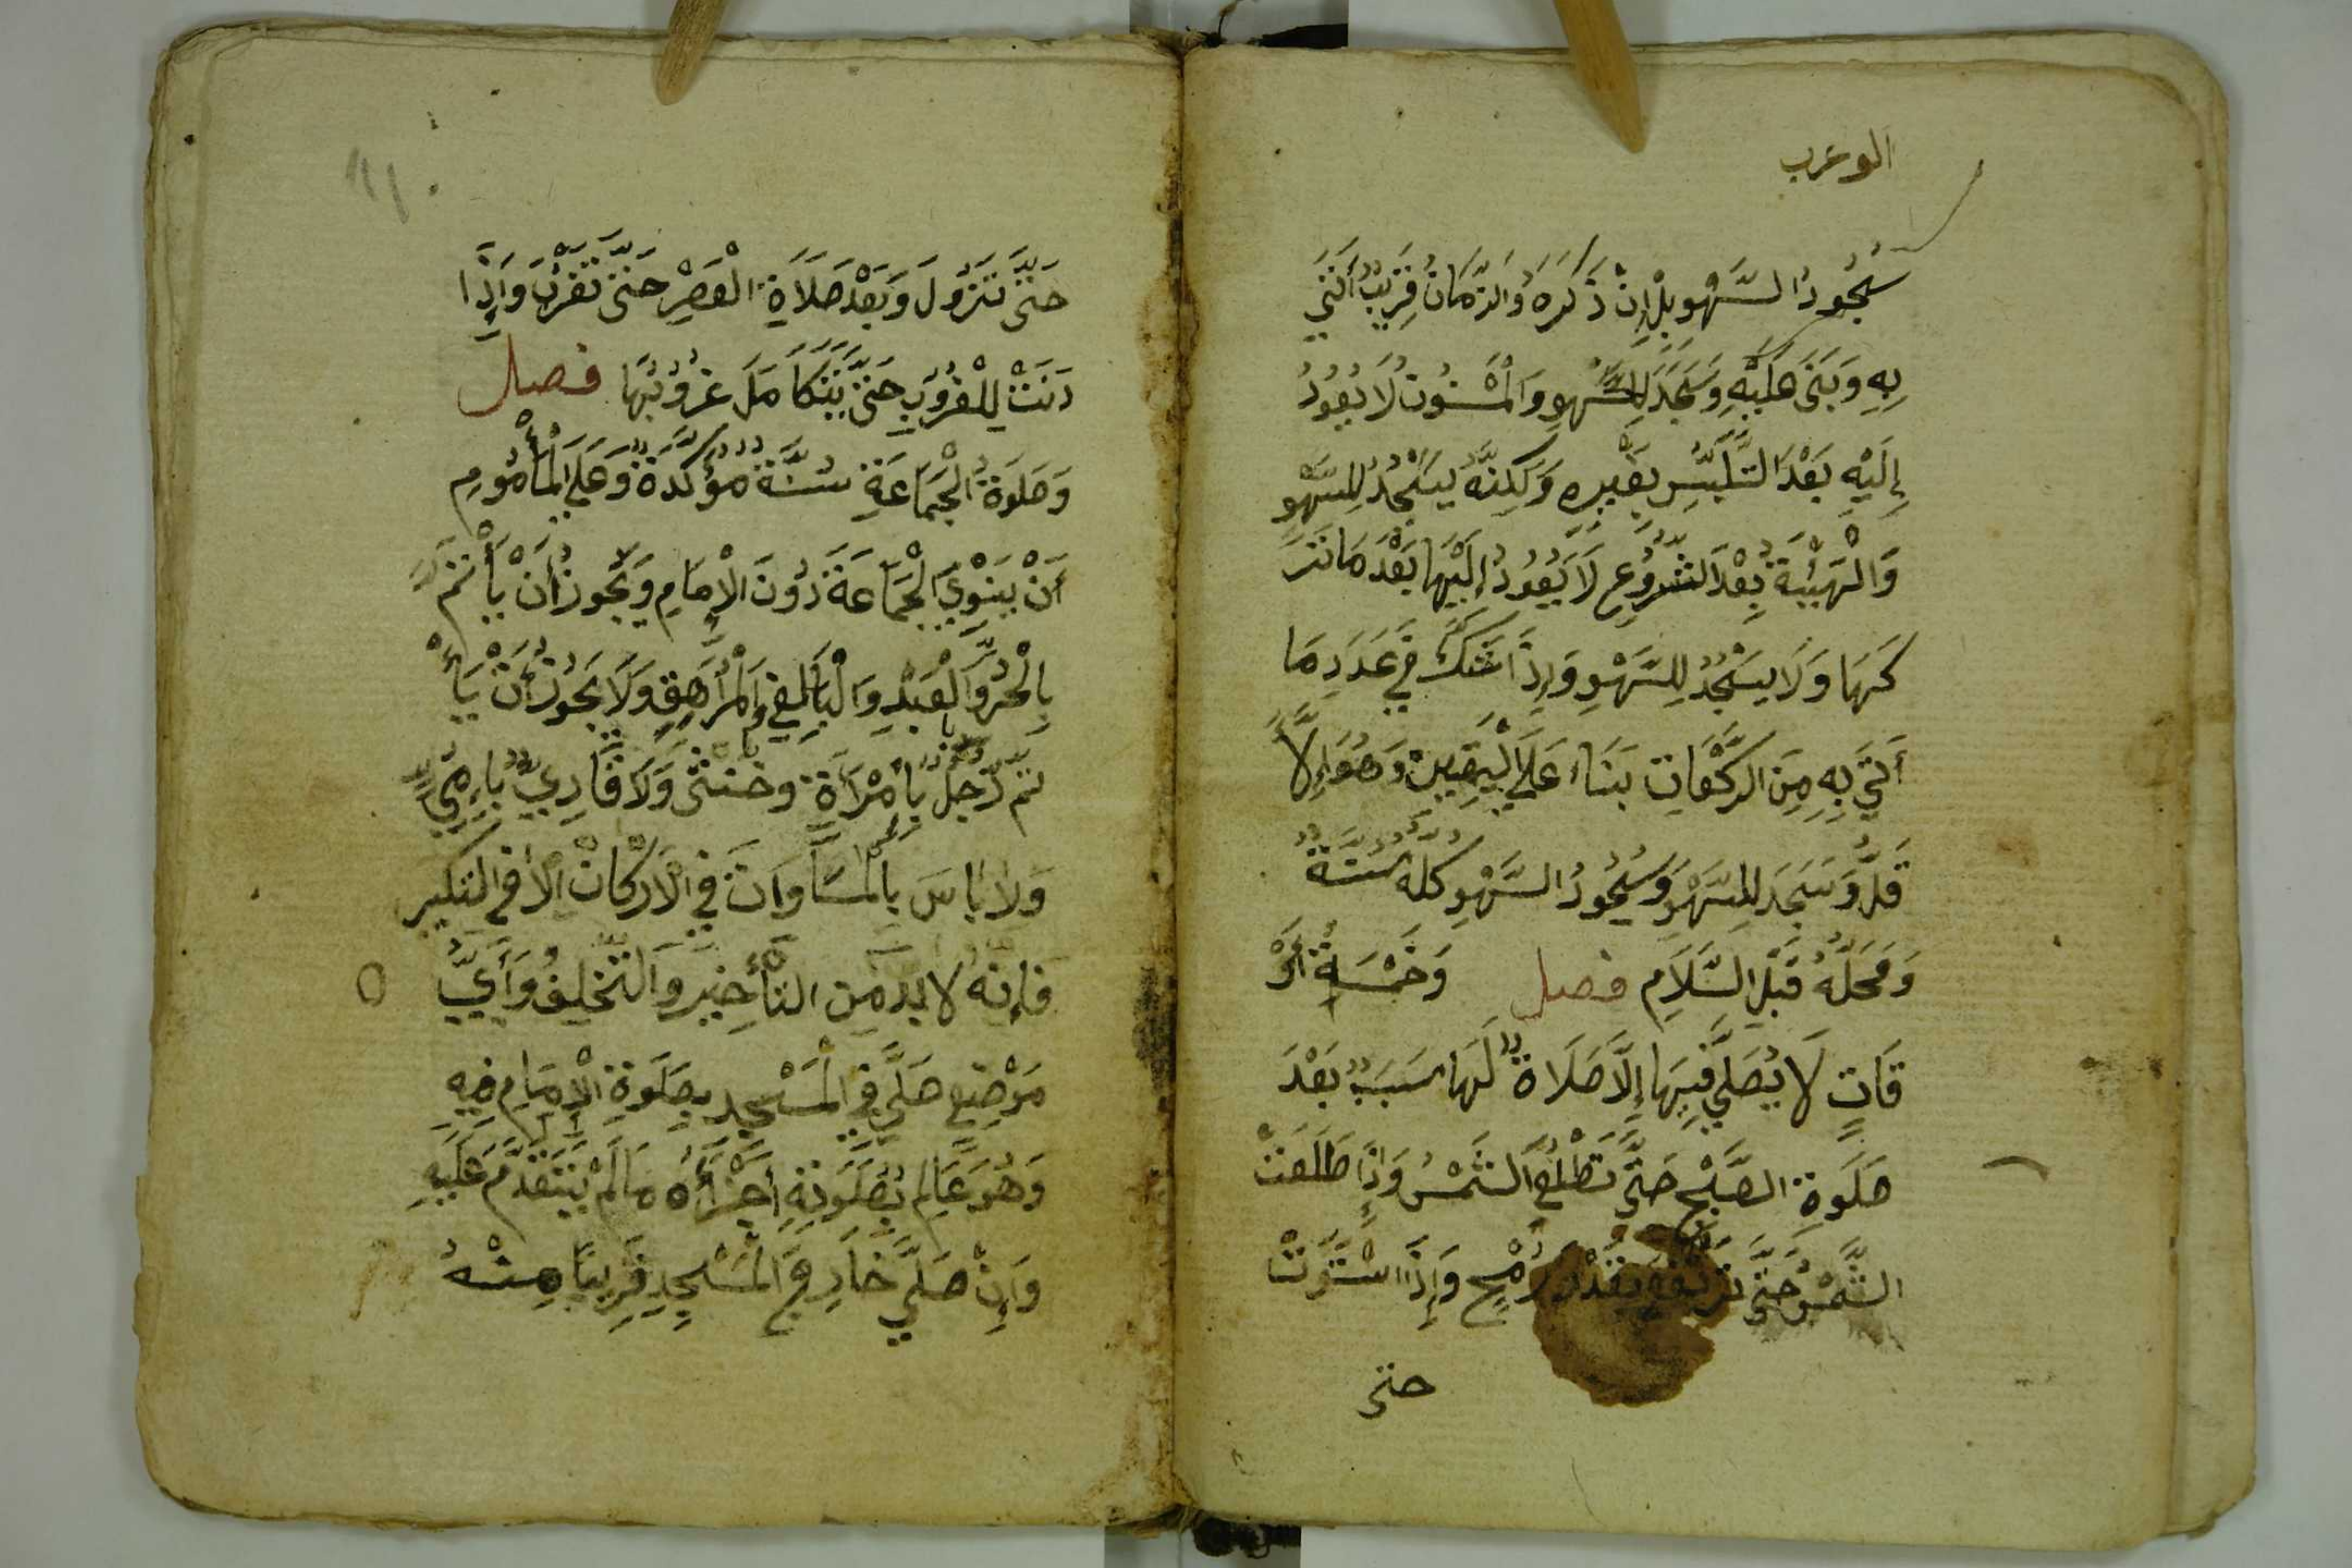 الوعرب
سُجُودُ السَّهْوِ بَلْ إِنْ ذَكَرَهُ وَالزَّمَانُ قَرِيبٌ أَتَى
بِهِ وَبَنَى عَلَيْهِ وَسَجَدَ لِلسَّهْوِ وَالْمَسْنُونُ لَا يَعُودُ
إِلَيْهِ بَعْدَ التَّلَبُّسِ بِغَيْرِهِ وَلَكِنَّهُ يَسْجُدُ لِلسَّهْوِ
وَالْهَيْئَةُ بَعْدَ الشُّرُوعِ لَا يَعُودُ إِلَيْهَا بَعْدَ مَا تَرَ
كَهَا وَلَا يَسْجُدُ لِلسَّهْوِ وَإِذَا شَكَّ فِي عَدَدِ مَا
أَتَى بِهِ مِنَ الرَّكَعَاتِ بَنَاءَ عَلَى الْيَقِينِ وَهُوَ إِلَّا
قَلُّ وَسَجَدَ لِلسَّهْوِ وَسُجُودُ السَّهْوِ كله سُنَّةٌ
وَمَحَلُّهُ قَبْلَ السَّلَامِ فصل وَخَمْسَةُ أَوْ
قَاتٍ لَا يُصَلِّي فِيهَا إِلَّا صَلَاةً لَهَا سَبَبٌ بَعْدَ
صَلَوةِ الصُّبْحِ حَتَّى تَطْلُعَ الشَّمْسُ وَإِذَا طَلَعَتْ
الشَّمْسُ حَتَّى تَرْتَفِعَ بِقَدْرِ رُمْحٍ وَإِذَا اسْتَوَتْ
حتى
حَتَّى تَزُولَ وَبَعْدَ صَلَاةِ الْعَصْرِ حَتَّى تَغْرُبَ وَإِذَا
دَنَتْ لِلْغُرُوبِ حَتَّى يَتَكَامَلَ غُرُوبُهَا فصل
وَصَلَوةُ الْجَمَاعَةِ سُنَّةٌ مُؤَكَّدَةٌ وَعَلَى الْمَأْمُومِ
أَنْ يَنْوِيَ الْجَمَاعَةَ دُونَ الْإِمَامِ وَيَجُوزُ أَنْ يَأْتَمَّ
بِالْحُرِّ وَالْعَبْدِ وَالْبَالِغِ وَالْمُرَاهِقِ وَلَا يَجُوزُ أَنْ يَأْ
تَمَّ رَجُلٌ بِامْرَأَةٍ وخنثى وَلَا قَارِيٌ بِأُمِّيٍّ
وَلَا بَاسَ بِالْمُسَاوَاتِ فِي الْأَرْكَانِ الا في التكبير
فَإِنَّهُ لا بد مِنَ التَّأْخِيرِ وَالتَّخْلِيفُ وَأَيُّ
مَوْضِعٍ صَلَّى فِي الْمَسْجِدِ بِصَلَوةِ الْإِمَامِ فِيهِ
وَهُوَ عَالِمٌ بِصَلَوتِهِ أَجْزَأَهُ مَا لَمْ يَتَقَدَّمْ عَلَيْهِ
وَإِنْ صَلَّى خَارِجَ الْمَسْجِدِ قَرِيبًا مِنْهُ